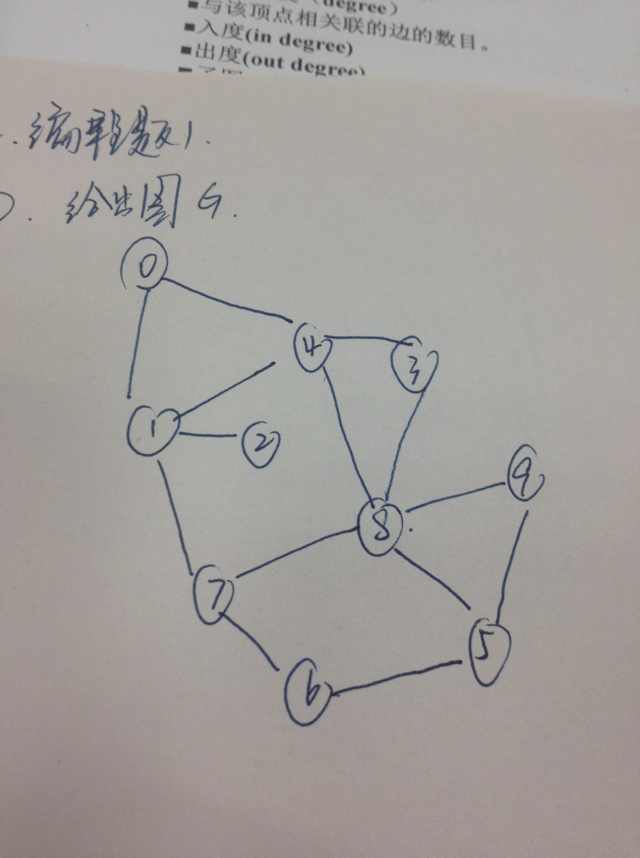 (degree)
■与该顶点相关联的边的数目。
■入度(in degree)
■出度(out degree)
编程题1.
给出图 G.
0
4
3
1
2
9
8
7
5
6